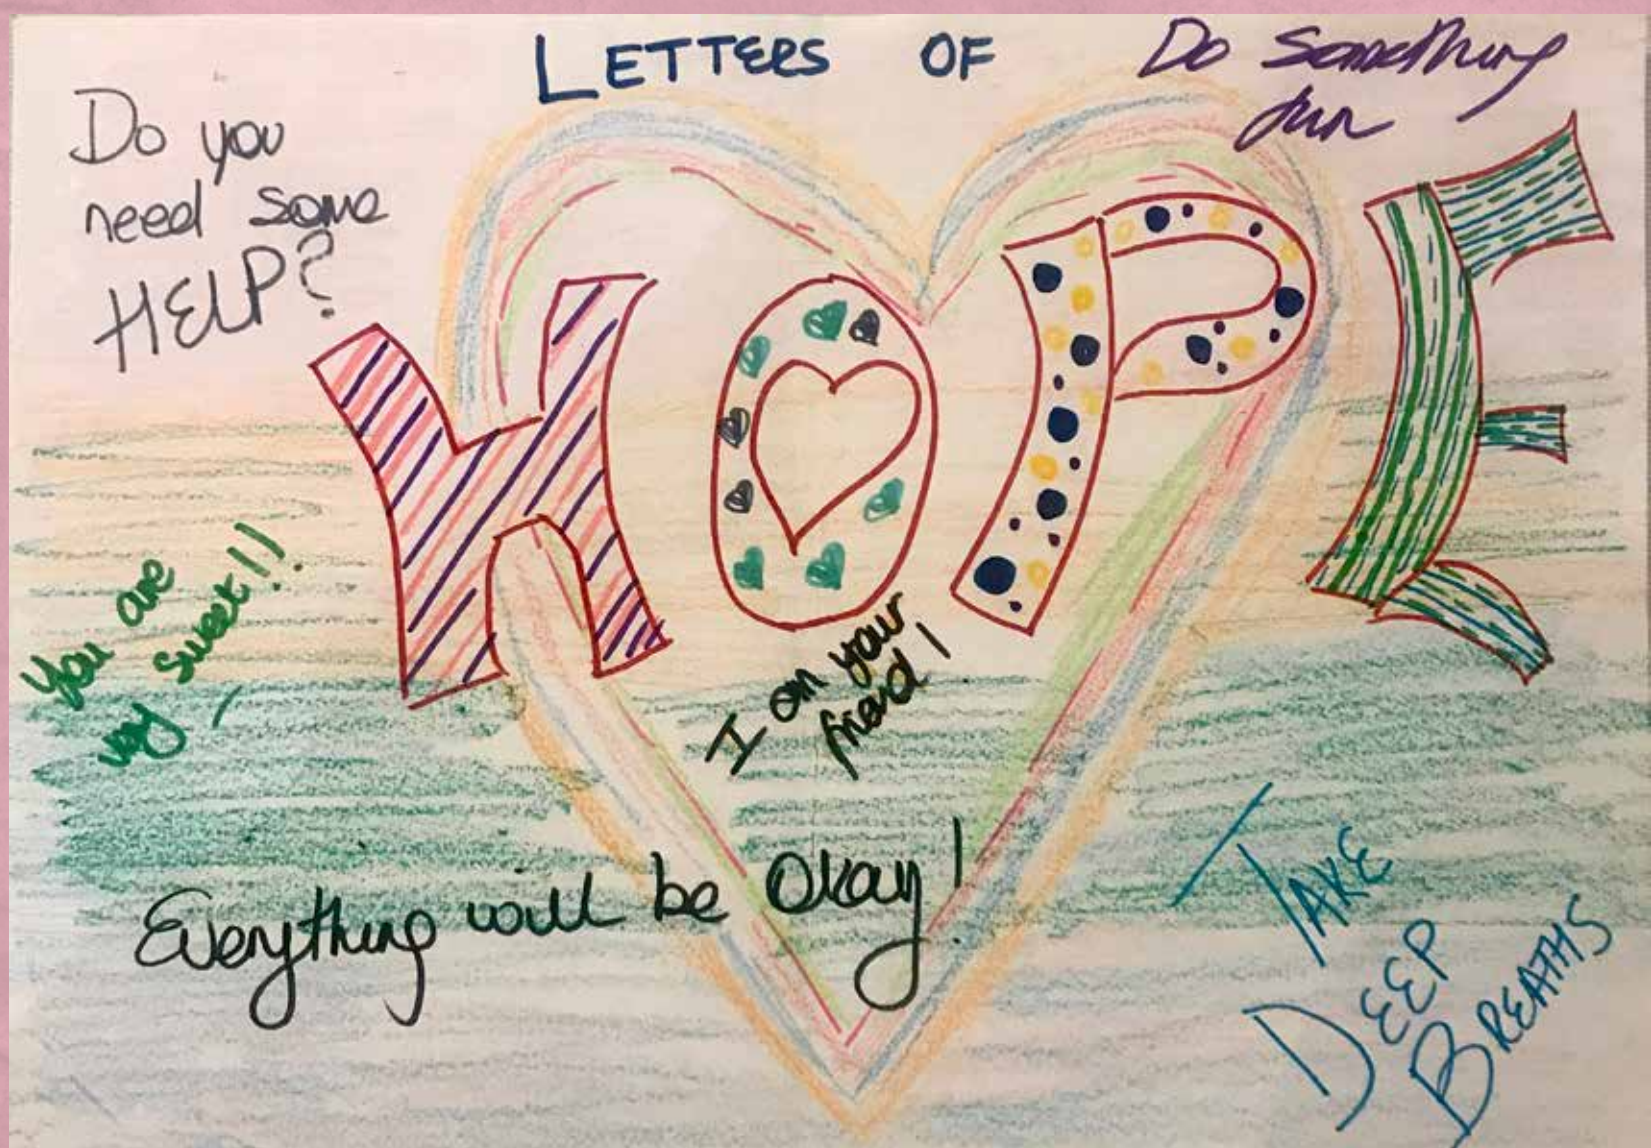 LETTERS OF
HOPE
Do something
fun
Do you
need some
HELP?
You are
my sweet!!
I am your
friend!
Everything will be Okay!
TAKE
DEEP
BREATHS